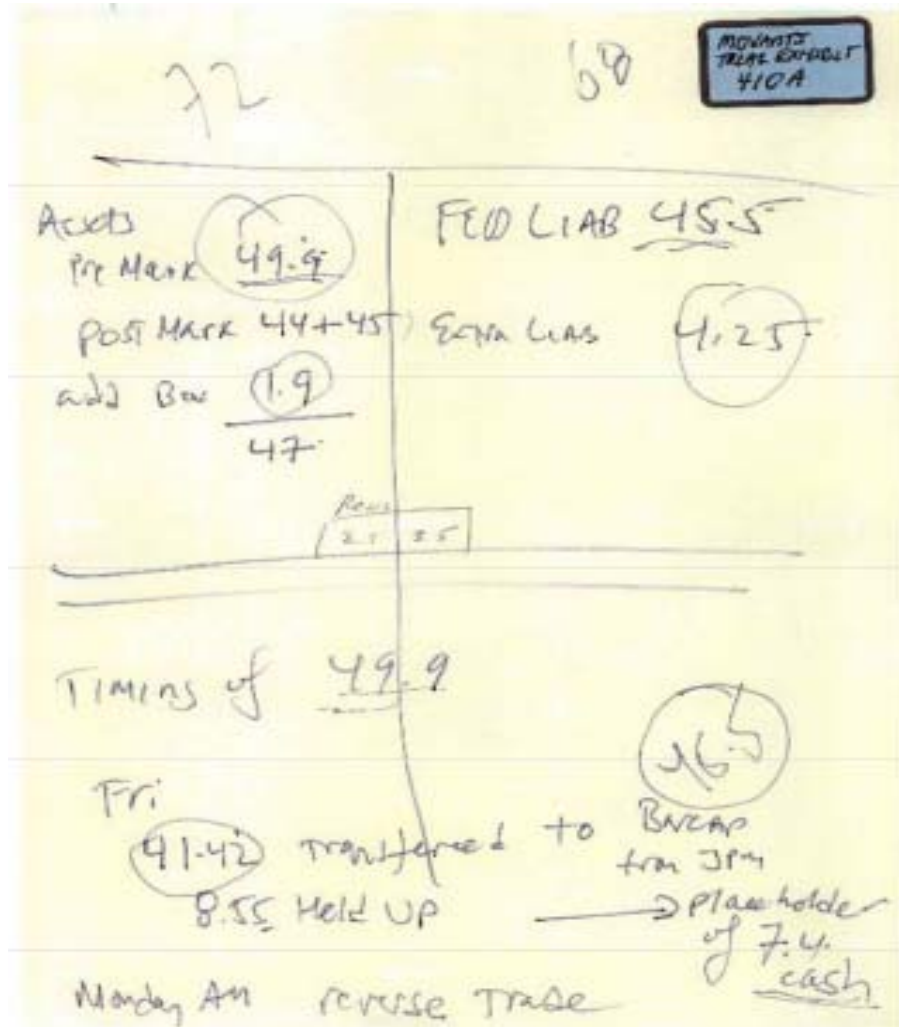 MOVANTS
TRIAL EXHIBIT
410A
72
68
Assets
Pre Mark 49.9
Post Mark 44+45
add Box 1.9
47
FED LIAB 45.5
Extra LIAB 4.25
Timing of 49.9
Fri
41-42 transferred to Barcap
from JPM
8.55 Held UP
Placeholder
of 7.4.
cash
Monday AM reverse Trade